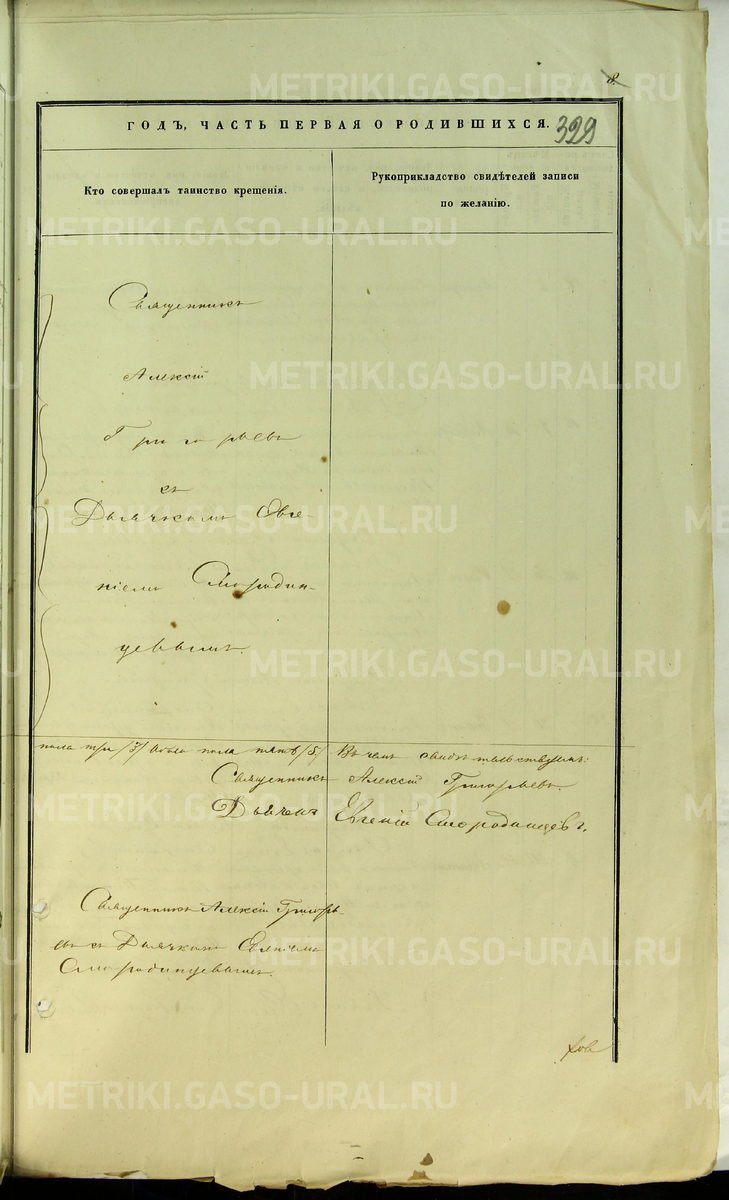 8.
ГОДЪ, ЧАСТЬ ПЕРВАЯ О РОДИВШИХСЯ.
329
Кто совершалъ таинство крещенія.
Рукоприкладство свидѣтелей записи
по желанію.
Священникъ
Алексій
Григорьевъ
съ
Дьячкомъ Евге-
ніемъ Смородин-
цевымъ.
пола три /3/ обоего пола пять /5/ Въ чемъ свидѣтельствуемъ:
Священникъ Алексій Григорьевъ
Дьячекъ Евгеній Смородинцевъ.
Священникъ Алексій Григорь-
евъ съ Дьячкомъ Евгеніемъ
Смородинцевымъ.
METRIKI.GASO-URAL.RU